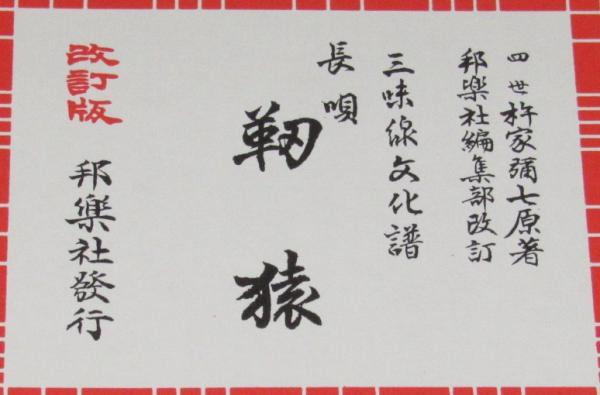 四世杵家彌七原著
邦樂社編集部改訂
三味線文化譜
長唄
靭猿
改訂版
邦樂社發行